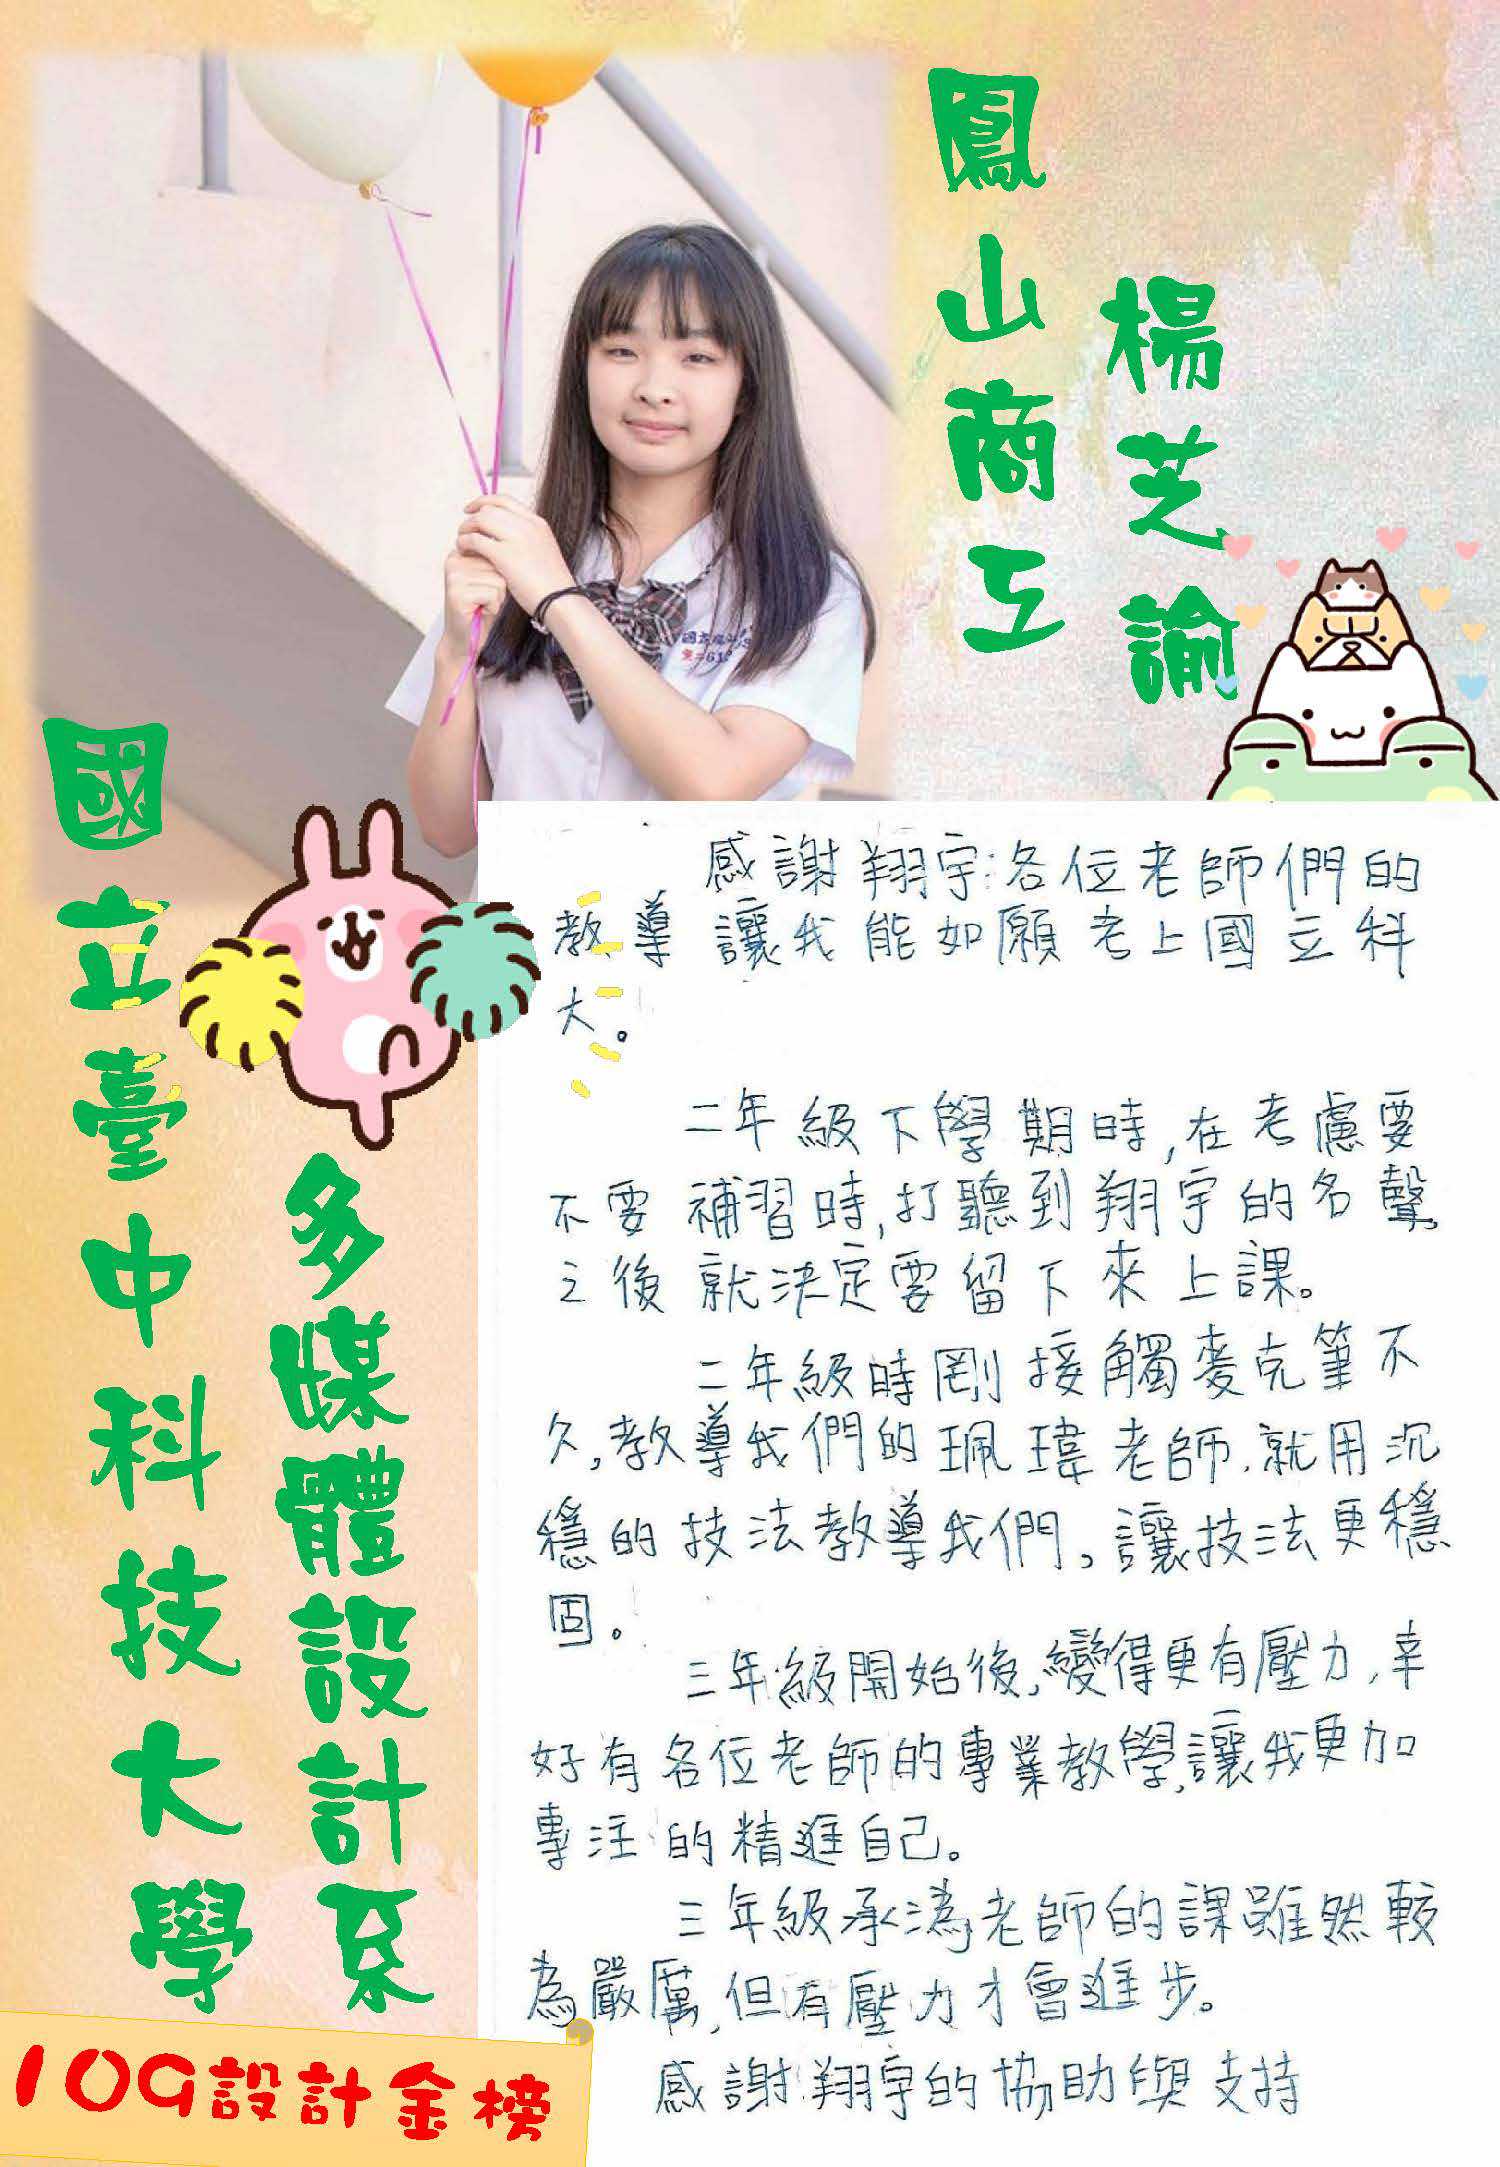 鳳山商工
楊芝諭
國立臺中科技大學
多媒體設計系
感謝翔宇各位老師們的
教導讓我能如願考上國立科
大。
二年級下學期時,在考慮要
不要補習時,打聽到翔宇的名聲,
之後就決定要留下來上課。
二年級時剛接觸麥克筆不
久,教導我們的珮瑋老師,就用沉
穩的技法教導我們,讓技法更穩
固。
三年級開始後,變得更有壓力,幸
好有各位老師的專業教學,讓我更加
專注的精進自己。
三年級承溈老師的課雖然較
為嚴厲,但有壓力才會進步。
感謝翔宇的協助與支持
109設計金榜